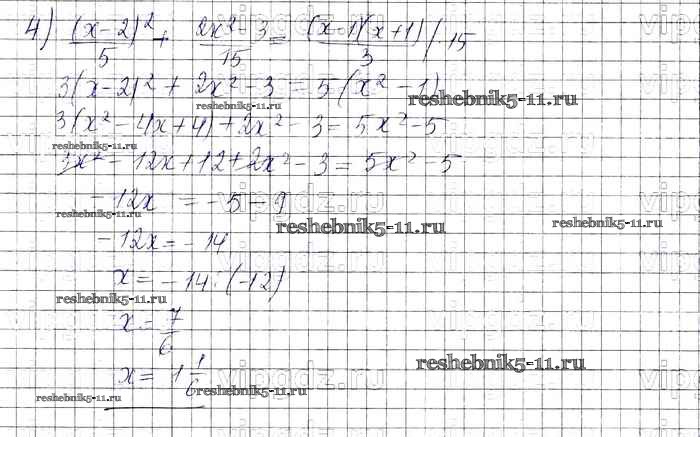 4) (x-2)²/5 + 2x²-3/15 = (x-1)(x+1)/3 |·15
3(x-2)² + 2x² - 3 = 5(x² - 1)
reshebnik5-11.ru
reshebnik5-11.ru
3(x² - 4x + 4) + 2x² - 3 = 5x² - 5
reshebnik5-11.ru
3x² - 12x + 12 + 2x² - 3 = 5x² - 5
vipgdz.ru
- 12x = - 5 - 9
reshebnik5-11.ru
reshebnik5-11.ru
reshebnik5-11.ru
- 12x = - 14
x = - 14 : (-12)
vipgdz.ru
reshebnik5-11.ru
x = 7/6
reshebnik5-11.ru
x = 1 1/6
vipgdz.ru
reshebnik5-11.ru
reshebnik5-11.ru